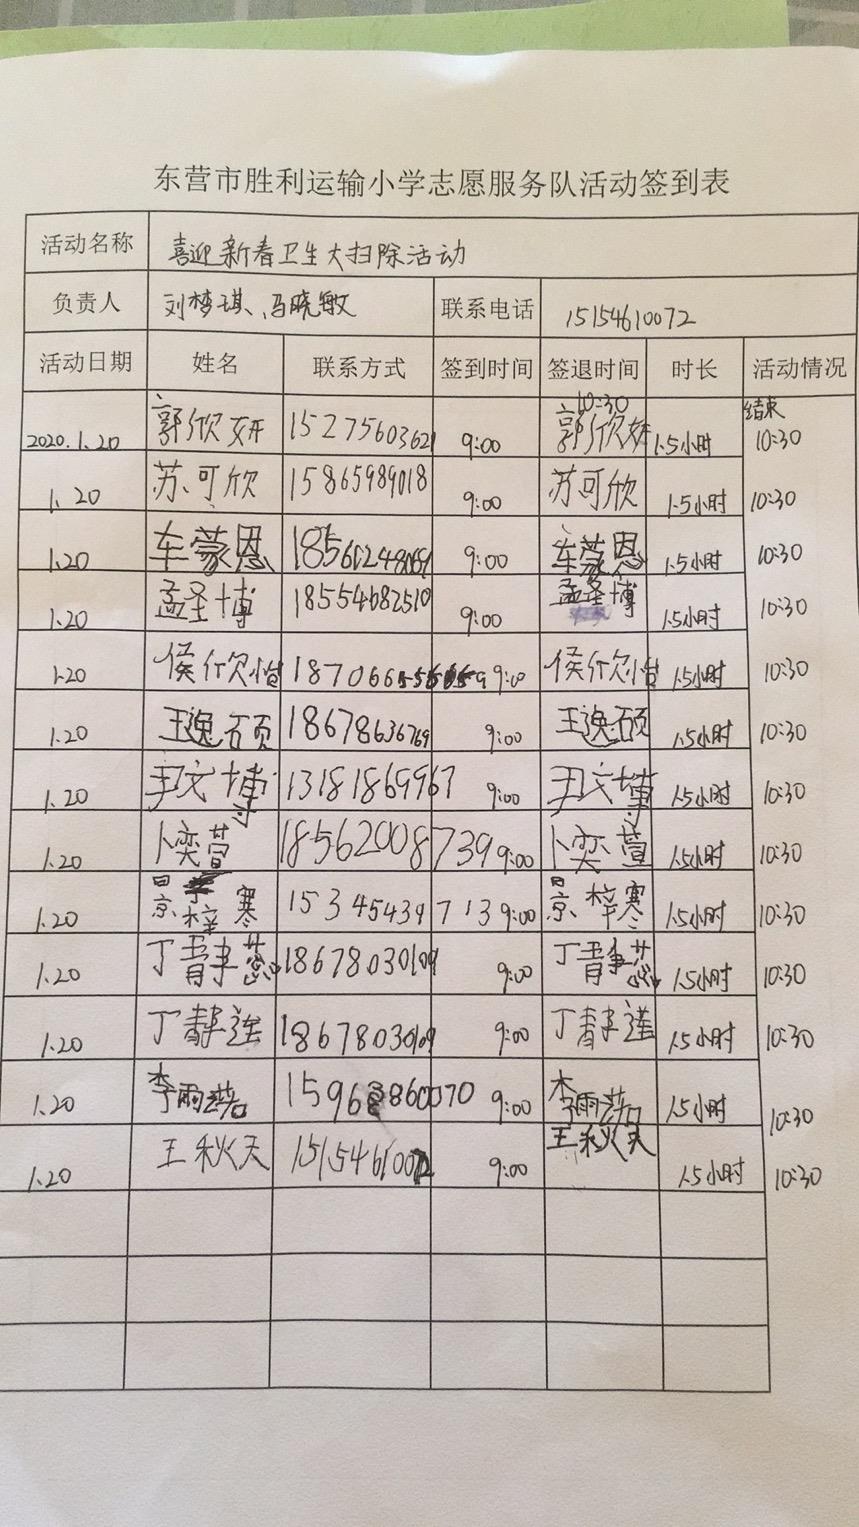 东营市胜利运输小学志愿服务队活动签到表
活动名称 喜迎新春卫生大扫除活动
负责人 刘梦琪、马晓敏 联系电话 15154610072
活动日期 姓名 联系方式 签到时间 签退时间 时长 活动情况
10:30 结束
2020.1.20 郭欣妍 15275603621 9:00 郭欣妍 1.5小时 10:30
1.20 苏可欣 15865989018 9:00 苏可欣 1.5小时 10:30
1.20 车蒙恩 9:00 车蒙恩 1.5小时 10:30
1.20 孟圣博 18554682510 9:00 孟圣博 1.5小时 10:30
1.20 侯欣怡 9:00 侯欣怡 1.5小时 10:30
1.20 王逸硕 18678636769 9:00 王逸硕 1.5小时 10:30
1.20 尹文博 13181869967 9:00 尹文博 1.5小时 10:30
1.20 卜奕萱 18562008739 9:00 卜奕萱 1.5小时 10:30
1.20 景梓寒 15345439713 9:00 景梓寒 1.5小时 10:30
1.20 丁静蕊 18678030109 9:00 丁静蕊 1.5小时 10:30
1.20 丁静 18678030109 9:00 丁静 1.5小时 10:30
1.20 李雨 9:00 李雨 1.5小时 10:30
1.20 王秋天 15154610072 9:00 王秋天 1.5小时 10:30